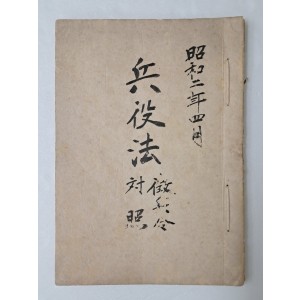 昭和二年四月
兵役法
徴兵令
対照